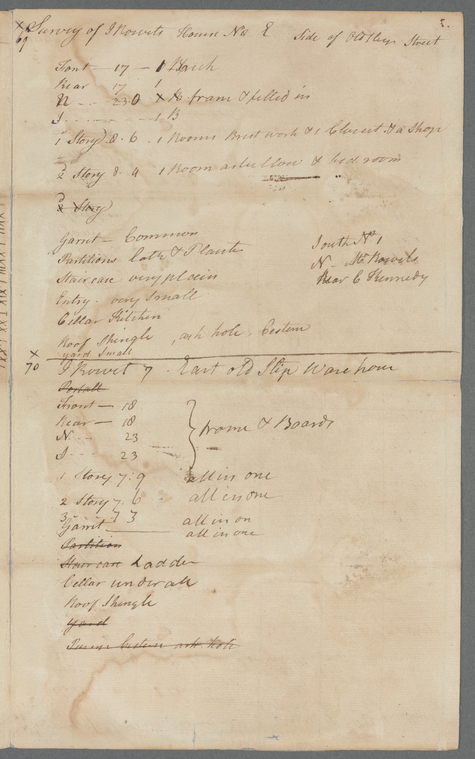 5.
X
69 Survey of J Rowets House No E Side of Old Slip Street
Font — 17 — 1 Brick
Rear 17 1
N - - - 23.0 X X fram & filled in
S - - - - - - 1 B
1 Story 8 . 6 . 1 Room Brest work & 1 Closset & a Shop
2 Story 8 . 4 1 Room & bed room
3 Story
Garrit — Common
Partitions Lath & Plaister
Stair case very plain
Entry . very Small
Cellar Kitchen
Roof Shingle , ash hole . Cestern
yard Small
South No 1
N. Mr Rowets
Rear C Kennedy
X
70 J Rowet 7 . East old Slip Ware hour
Portall
Front — 18
Rear — 18
N - - - 23
S - - - 23
frame & Boards
1 Story 7 . 9 all in one
2 Story 7 . 6 all in one
3 - - - 7 3 all in on
Garrit — all in one
Partition
Stair case Ladder
Cellar under all
Roof Shingle
Yard
Cestern ash Hole